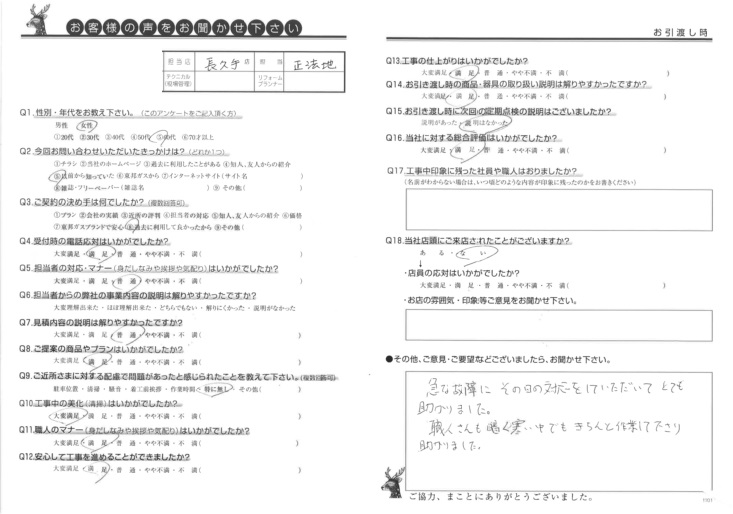 お客様の声をお聞かせ下さい
お引渡し時
担当店 長久手店 担当 正法地
テクニカル(現場管理) リフォームプランナー
Q1.性別・年代をお教え下さい。(このアンケートをご記入頂く方)
男性 女性
①20代 ②30代 ③40代 ④50代 ⑤60代 ⑥70才以上
Q2.今回お問い合わせいただいたきっかけは?(どれか1つ)
①チラシ ②当社のホームページ ③過去に利用したことがある ④知人、友人からの紹介
⑤以前から知っていた ⑥東邦ガスから ⑦インターネットサイト(サイト名 )
⑧雑誌・フリーペーパー(雑誌名 ) ⑨その他( )
Q3.ご契約の決め手は何でしたか?(複数回答可)
①プラン ②会社の実績 ③近所の評判 ④担当者の対応 ⑤知人、友人からの紹介 ⑥価格
⑦東邦ガスブランドで安心 ⑧過去に利用して良かったから ⑨その他( )
Q4.受付時の電話応対はいかがでしたか?
大変満足・満 足・普 通・やや不満・不 満( )
Q5.担当者の対応・マナー(身だしなみや挨拶や気配り)はいかがでしたか?
大変満足・満 足・普 通・やや不満・不 満( )
Q6.担当者からの弊社の事業内容の説明は解りやすかったですか?
大変理解出来た・ほぼ理解出来た・どちらでもない・解りにくかった・説明がなかった
Q7.見積内容の説明は解りやすかったですか?
大変満足・満 足・普 通・やや不満・不 満( )
Q8.ご提案の商品やプランはいかがでしたか?
大変満足・満 足・普 通・やや不満・不 満( )
Q9.ご近所さまに対する配慮で問題があったと感じられたことを教えて下さい。(複数回答可)
駐車位置・清掃・騒音・着工前挨拶・作業時間・特に無し・その他( )
Q10.工事中の美化(清掃)はいかがでしたか?
大変満足・満 足・普 通・やや不満・不 満( )
Q11.職人のマナー(身だしなみや挨拶や気配り)はいかがでしたか?
大変満足・満 足・普 通・やや不満・不 満( )
Q12.安心して工事を進めることができましたか?
大変満足・満 足・普 通・やや不満・不 満( )
Q13.工事の仕上がりはいかがでしたか?
大変満足・満 足・普 通・やや不満・不 満( )
Q14.お引き渡し時の商品・器具の取り扱い説明は解りやすかったですか?
大変満足・満 足・普 通・やや不満・不 満( )
Q15.お引き渡し時に次回の定期点検の説明はございましたか?
説明があった・説明はなかった
Q16.当社に対する総合評価はいかがでしたか?
大変満足・満 足・普 通・やや不満・不 満( )
Q17.工事中印象に残った社員や職人はおりましたか?
(名前がわからない場合は、いつ頃どのような内容が印象に残ったのかをお書きください)
Q18.当社店頭にご来店されたことがございますか?
あ る・な い
↓
・店員の応対はいかがでしたか?
大変満足・満 足・普 通・やや不満・不 満( )
・お店の雰囲気・印象等ご意見をお聞かせ下さい。
●その他、ご意見・ご要望などございましたら、お聞かせ下さい。
急な故障に その日の対応をしていただいて とても
助かりました。
職人さんも 寒い中でも きちんと作業して下さり
助かりました。
ご協力、まことにありがとうございました。